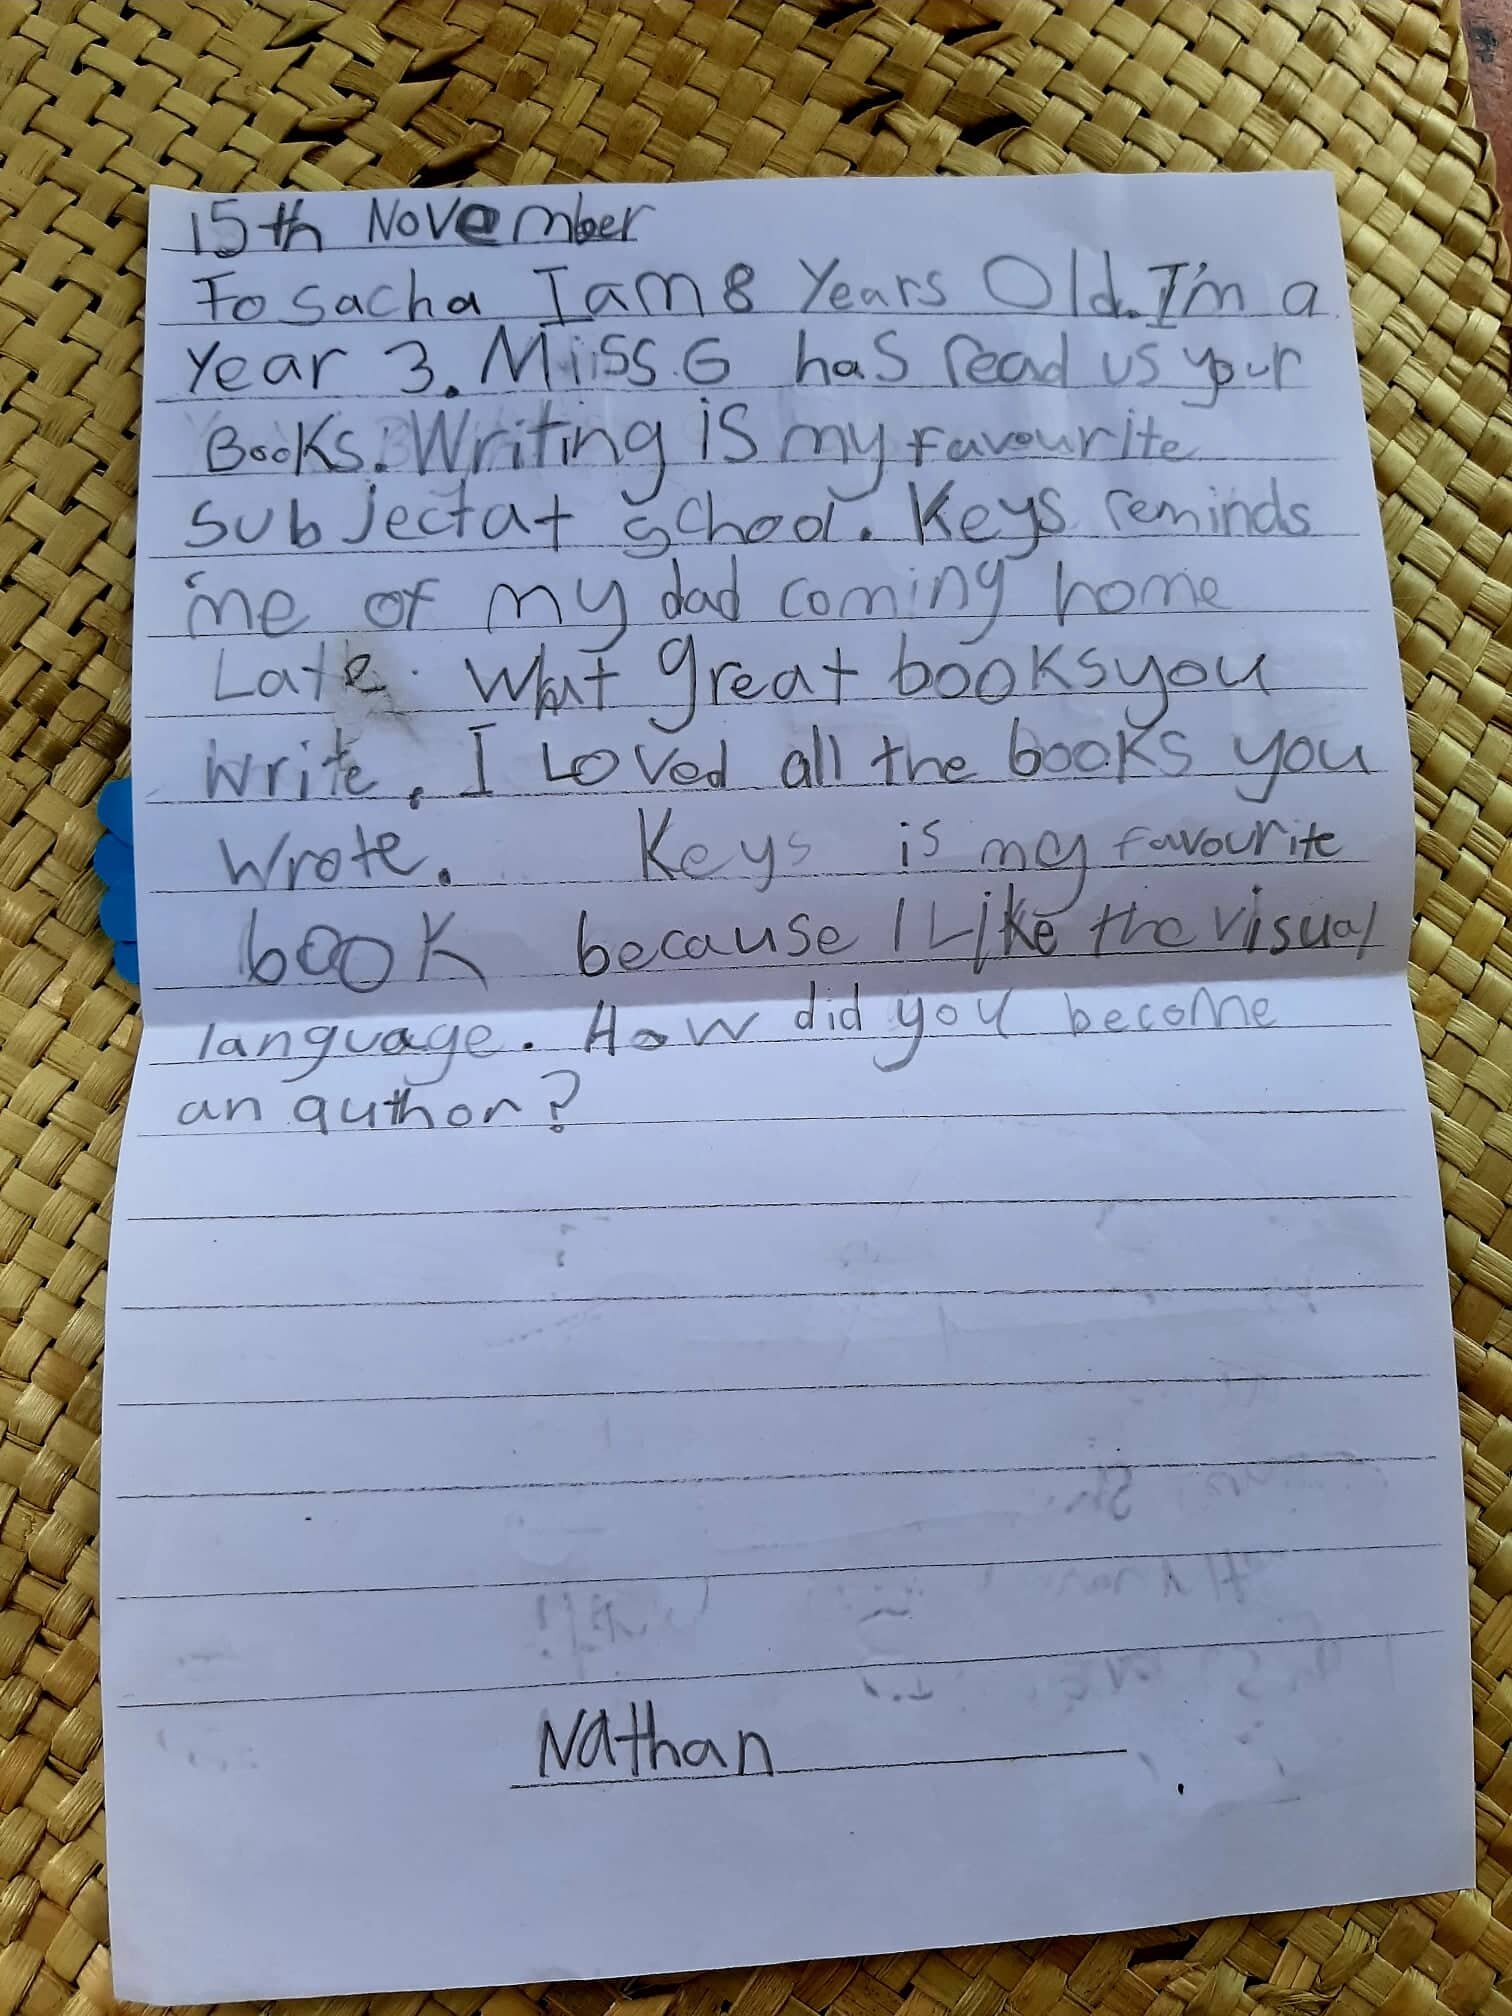 15th November
To sacha I am 8 Years Old. I'm a
Year 3. Miss G has read us your
Books. Writing is my favourite
Subject at school. Keys reminds
me of my dad coming home
Late. What great books you
write. I Loved all the books you
wrote. Keys is my favourite
book because I Like the visual
language. How did you become
an author?
Nathan